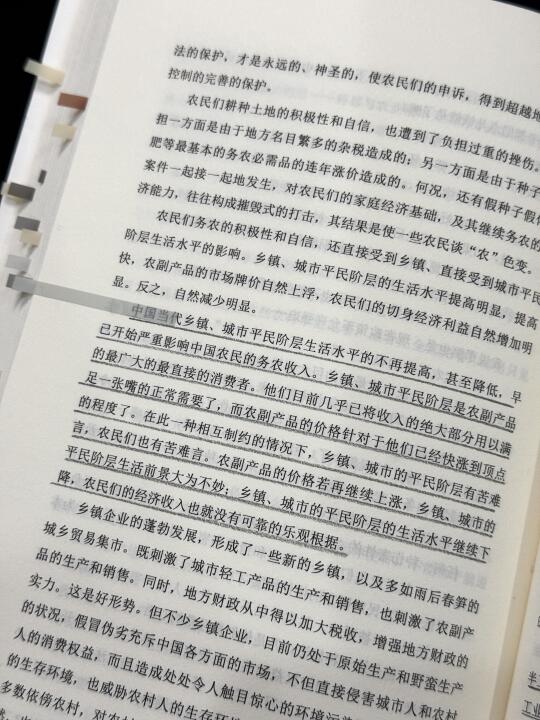 法的保护，才是永远的、神圣的，使农民们的申诉，得到超越地
控制的完善的保护。
农民们耕种土地的积极性和自信，也遭到了负担过重的挫伤。
担一方面是由于地方名目繁多的杂税造成的；另一方面是由于种子
肥等最基本的务农必需品的连年涨价造成的。何况，还有假种子假化
案件一起接一起地发生，对农民们的家庭经济基础，及其继续务农的
济能力，往往构成摧毁式的打击，其结果是使一些农民谈“农”色变。
农民们务农的积极性和自信，还直接受到乡镇、直接受到城市平民
阶层生活水平的影响。乡镇、城市平民阶层的生活水平提高明显，提高
快，农副产品的市场牌价自然上浮，农民们的切身经济利益自然增加明
显。反之，自然减少明显。
中国当代乡镇、城市平民阶层生活水平的不再提高，甚至降低，早
已开始严重影响中国农民的务农收入。乡镇、城市平民阶层是农副产品
的最广大的最直接的消费者。他们目前几乎已将收入的绝大部分用以满
足一张嘴的正常需要了，而农副产品的价格针对于他们已经快涨到顶点
的程度了。在此一种相互制约的情况下，乡镇、城市的平民阶层有苦难
言，农民们也有苦难言。农副产品的价格若再继续上涨，乡镇、城市的
平民阶层生活前景大为不妙；乡镇、城市的平民阶层的生活水平继续下
降，农民们的经济收入也就没有可靠的乐观根据。
乡镇企业的蓬勃发展，形成了一些新的乡镇，以及多如雨后春笋的
城乡贸易集市。既刺激了城市轻工产品的生产和销售，也刺激了农副产
品的生产和销售。同时，地方财政从中得以加大税收，增强地方财政的
实力。这是好形势。但不少乡镇企业，目前仍处于原始生产和野蛮生产
的状况，假冒伪劣充斥中国各方面的市场，不但直接侵害城市人和农村
人的消费权益，而且造成处处令人触目惊心的环境污
的生存环境，也威胁农村人的生存环
多数依傍农村，对农
半
工业